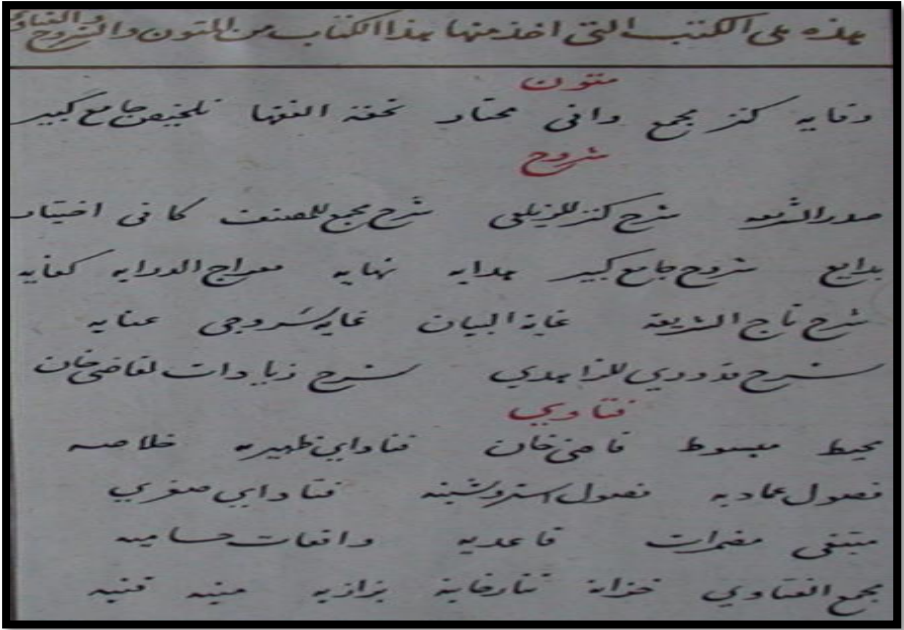 هذه هى الكتب التى اخذ منها هذا الكتاب من المتون والشروح والفتاوى
متون
وقايه كنز مجمع وافى مختار تحفة الفقها تلخيص جامع كبير
شروح
صدر الشريعه شرح كنز للزيلعى شرح مجمع للمصنف كافى اختيار
بدايع شروح جامع كبير هدايه نهايه معراج الدرايه كفايه
شرح تاج الشريعه غاية البيان غايه سَروجى عنايه
شرح قدوري للزاهدي شرح زيادات لقاضى خان
فتاوي
محيط مبسوط قاضى خان فتاواي ظهيريه خلاصه
فصول عماديه فصول استروشنيه فتاواي صغري
منتقى مضمرات قاعديه واقعات حساميه
مجمع الفتاوي خزانة تتارخانيه بزازيه منيه قنيه